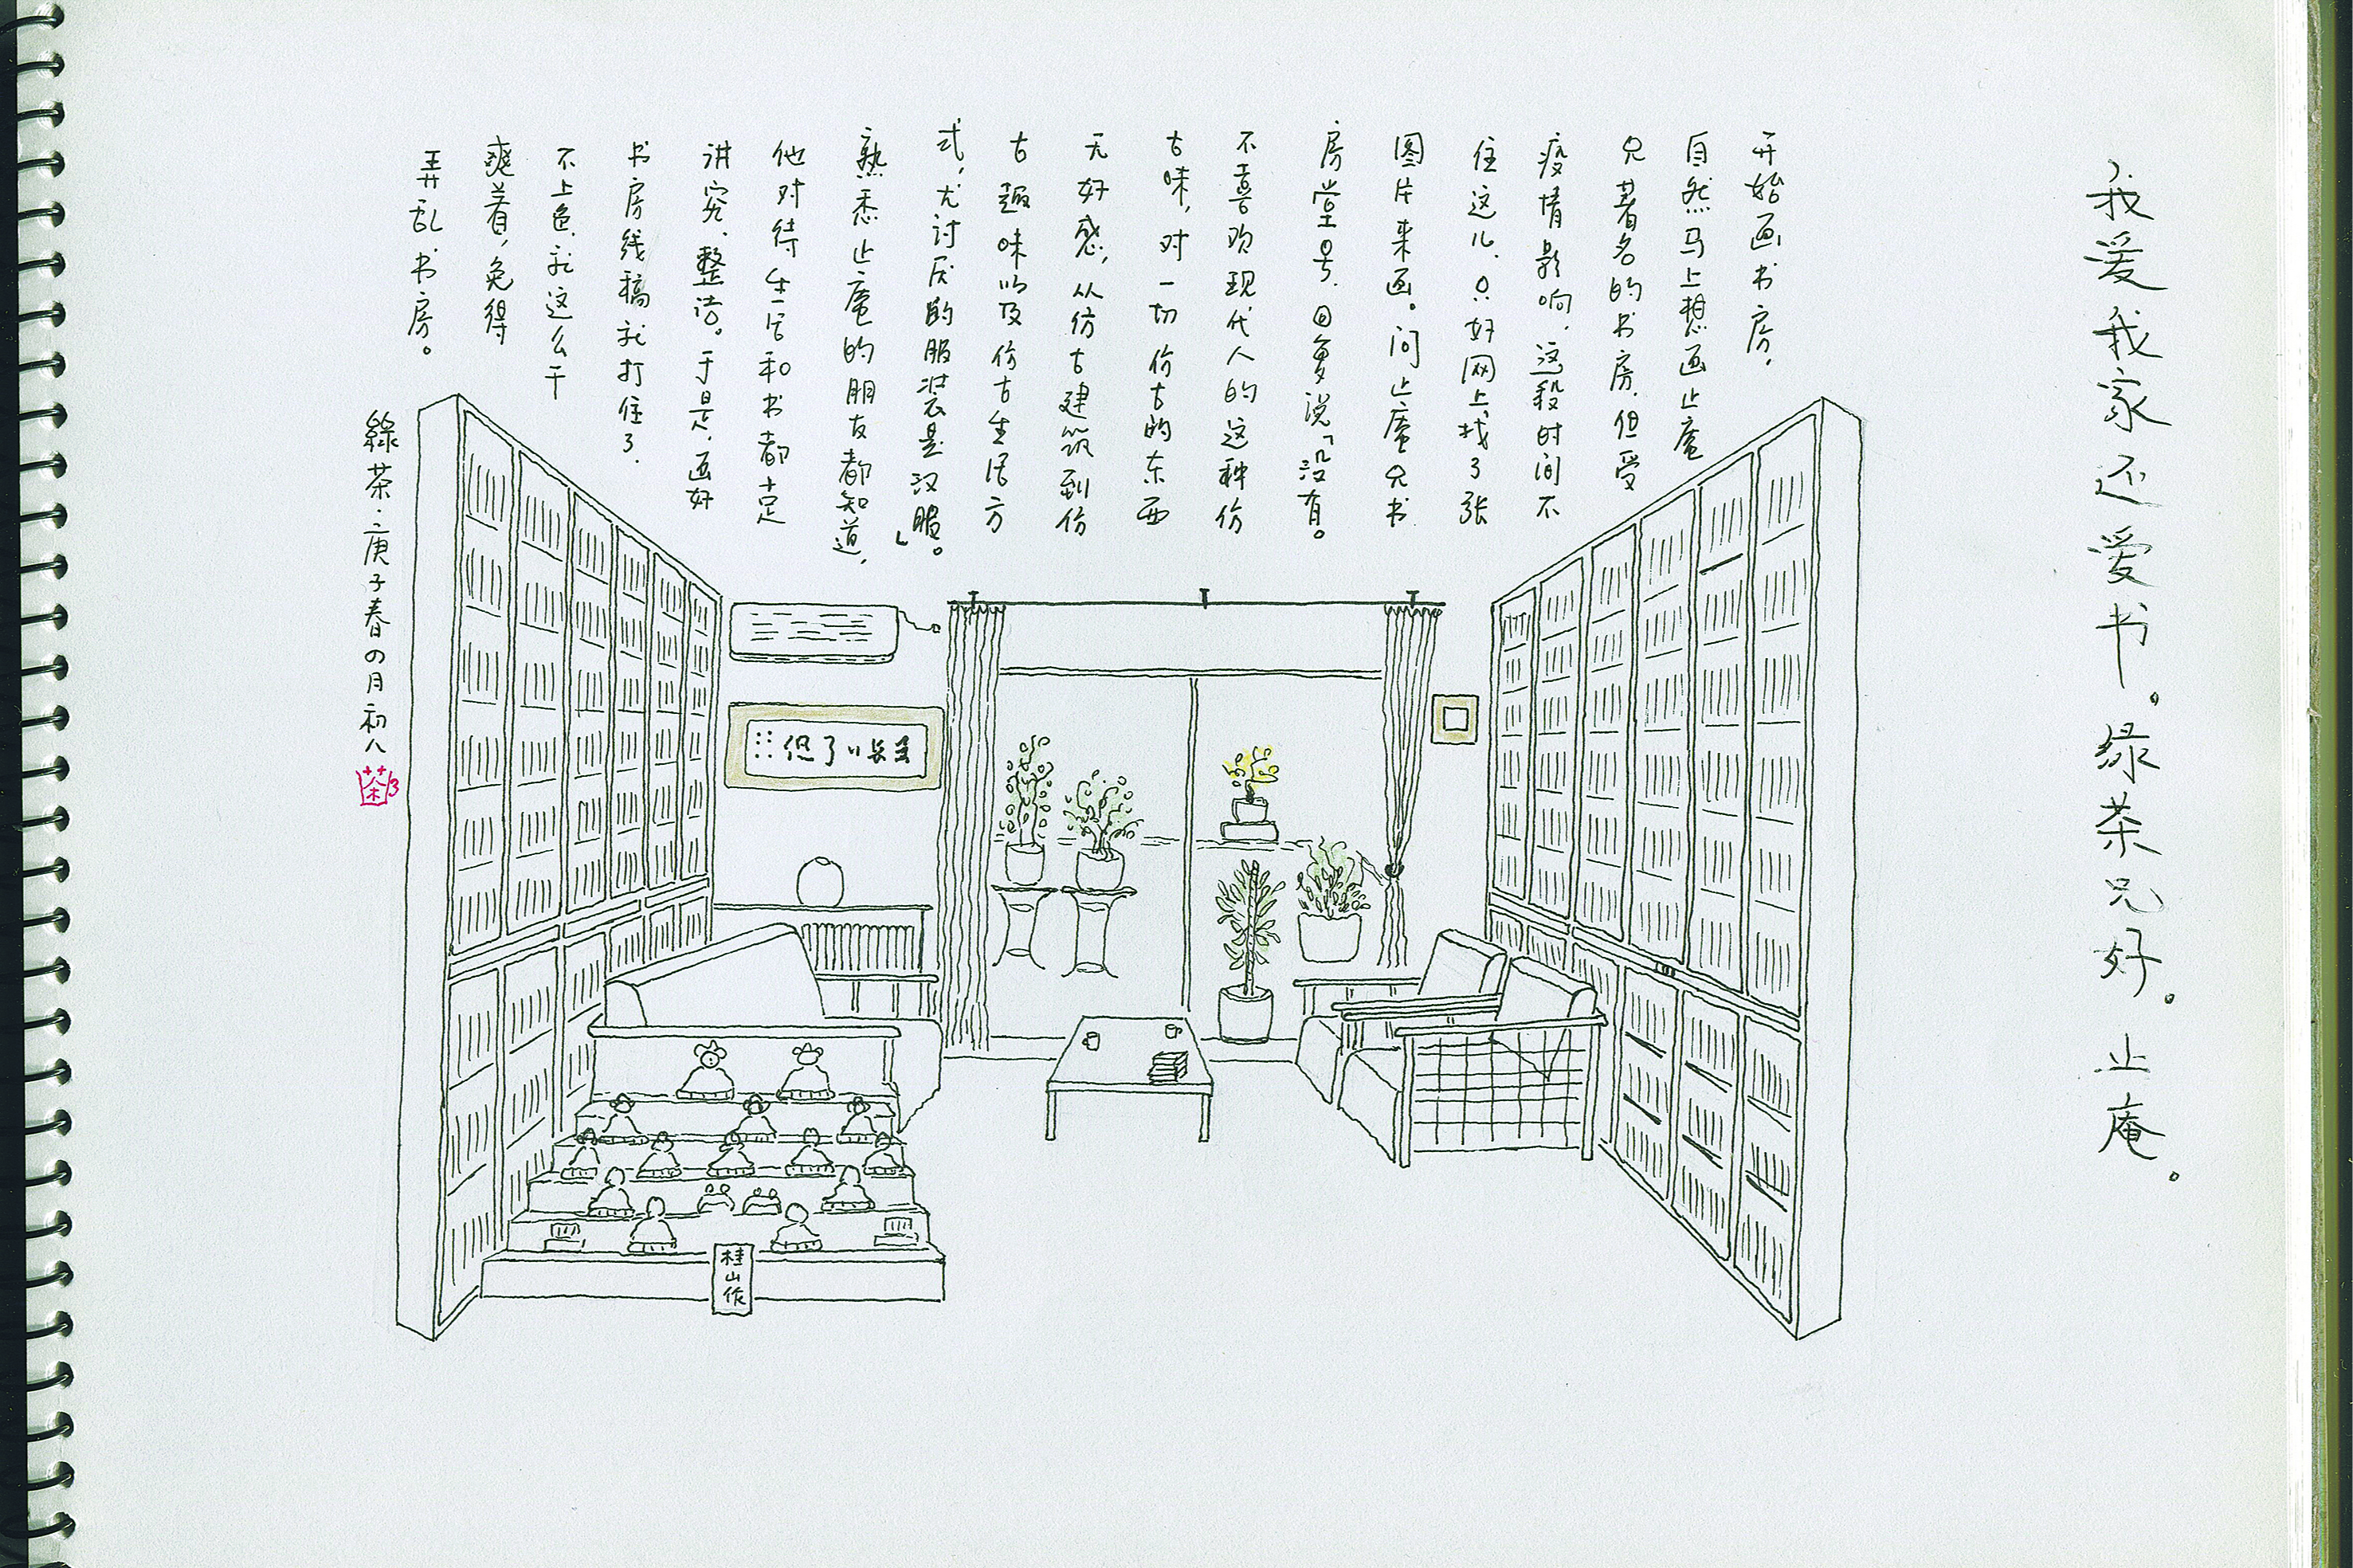 我爱我家还爱书。绿茶兄好。止庵。
开始画书房，
自然马上想画止庵
兄著名的书房，但受
疫情影响，这段时间不
住这儿，只好网上找了张
图片来画。问止庵兄书
房堂号，回复说「没有。
不喜欢现代人的这种仿
古味，对一切仿古的东西
无好感，从仿古建筑到仿
古趣味以及仿古生活方
式，尤讨厌的服装是汉服。」
熟悉止庵的朋友都知道，
他对待生活和书都十足
讲究、整洁。于是，画好
书房线稿就打住了，
不上色，就这么干
爽着，免得
弄乱书房。
綠茶·庚子春の月初八
茶
桂山作